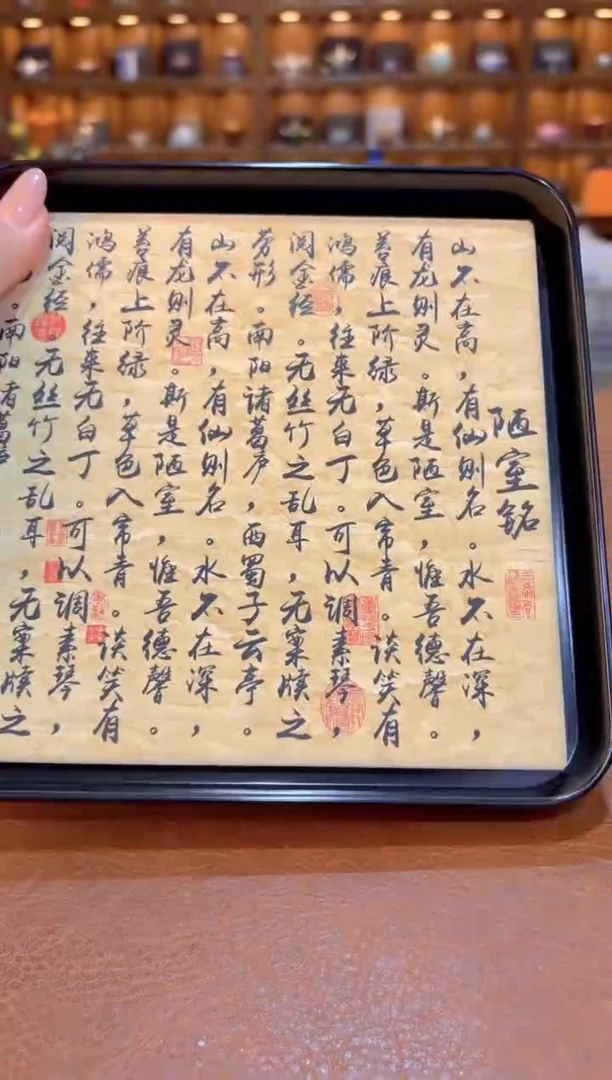 陋室铭
山不在高，有仙则名。水不在深，
有龙则灵。斯是陋室，惟吾德馨。
苔痕上阶绿，草色入帘青。谈笑有
鸿儒，往来无白丁。可以调素琴，
阅金经。无丝竹之乱耳，无案牍之
劳形。南阳诸葛庐，西蜀子云亭。
山不在高，有仙则名。水不在深，
有龙则灵。斯是陋室，惟吾德馨。
苔痕上阶绿，草色入帘青。谈笑有
鸿儒，往来无白丁。可以调素琴，
阅金经。无丝竹之乱耳，无案牍之
。南阳诸葛